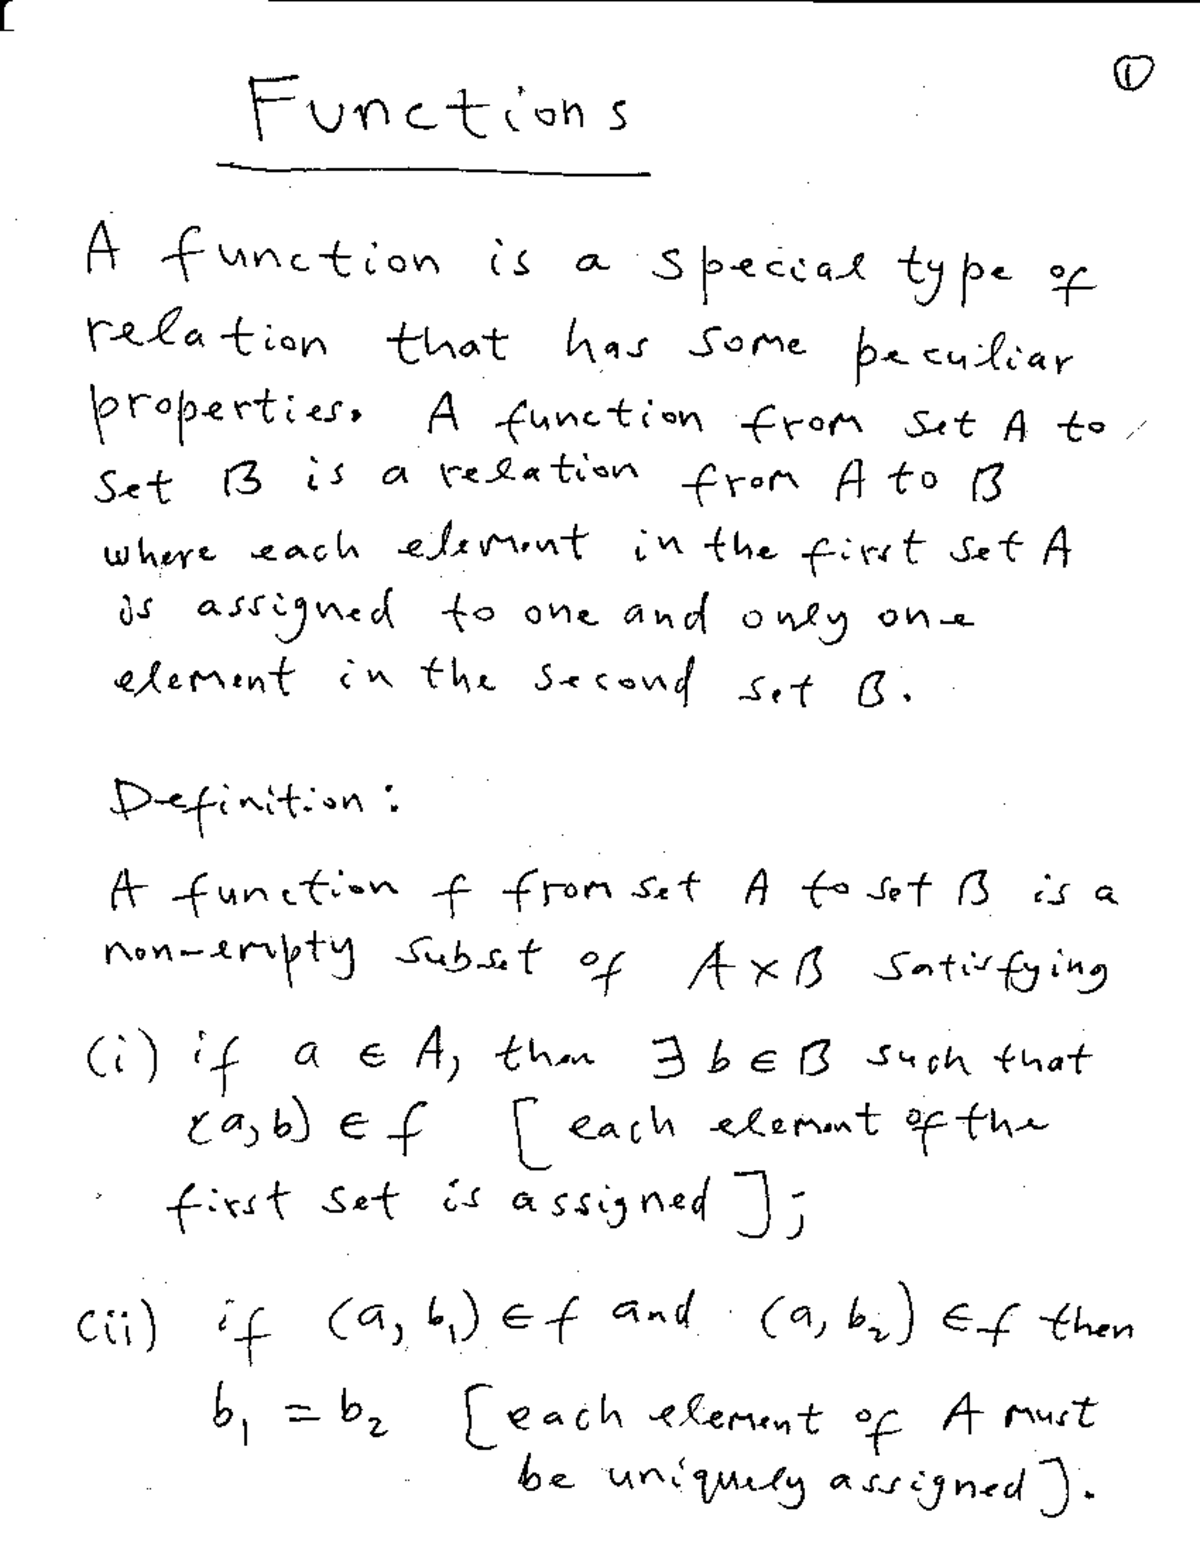 ①
Functions
A function is a special type of
relation that has some peculiar
properties. A function from set A to
set B is a relation from A to B
where each element in the first set A
is assigned to one and only one
element in the second set B.
Definition:
A function f from set A to set B is a
non-empty subset of A×B satisfying
(i) if a ∈ A, then ∃ b ∈ B such that
(a, b) ∈ f [each element of the
first set is assigned];
(ii) if (a, b₁) ∈ f and (a, b₂) ∈ f then
b₁ = b₂ [each element of A must
be uniquely assigned].